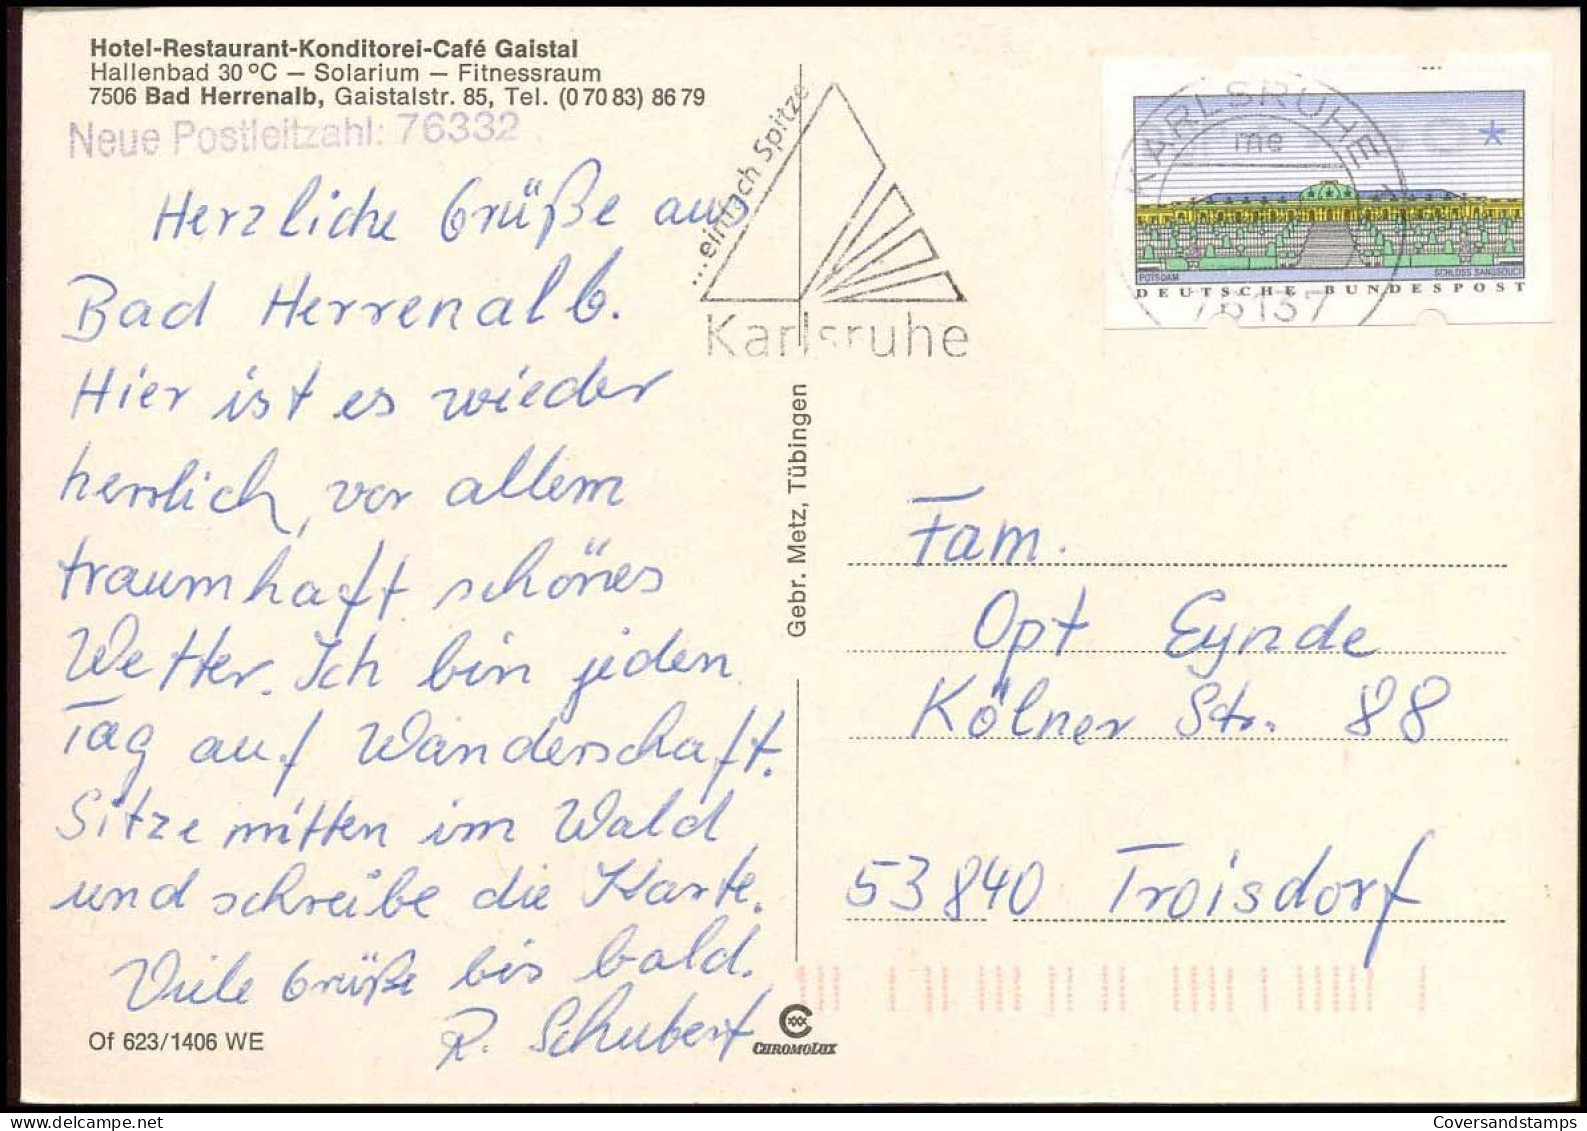 Hotel-Restaurant-Konditorei-Café Gaistal
Hallenbad 30 °C — Solarium — Fitnessraum
7506 Bad Herrenalb, Gaistalstr. 85, Tel. (0 70 83) 86 79
Neue Postleitzahl: 76332
Herzliche Grüße aus
Bad Herrenalb.
Hier ist es wieder
herrlich, vor allem
traumhaft schönes
Wetter. Ich bin jeden
Tag auf Wanderschaft.
Sitze mitten im Wald
und schreibe die Karte.
Viele Grüße bis bald.
R. Schubert
Of 623/1406 WE
...einfach Spitze
Karlsruhe
Gebr. Metz, Tübingen
CHROMOLUX
KARLSRUHE 1
me
76137
POTSDAM
SCHLOSS SANSSOUCI
DEUTSCHE BUNDESPOST
Fam.
Opt Eynde
Kölner Str. 88
53840 Troisdorf
Coversandstamps